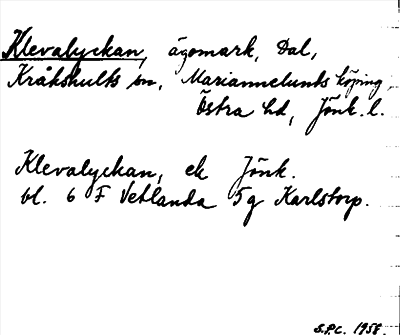 Klevalyckan, ägomark, Dal,
Kråkshults sn, Mariannelunds köping,
Östra hd, Jönk. l.
Klevalyckan, ek Jönk.
bl. 6 F Vetlanda 5g Karlstorp.
S.P.C. 1958.